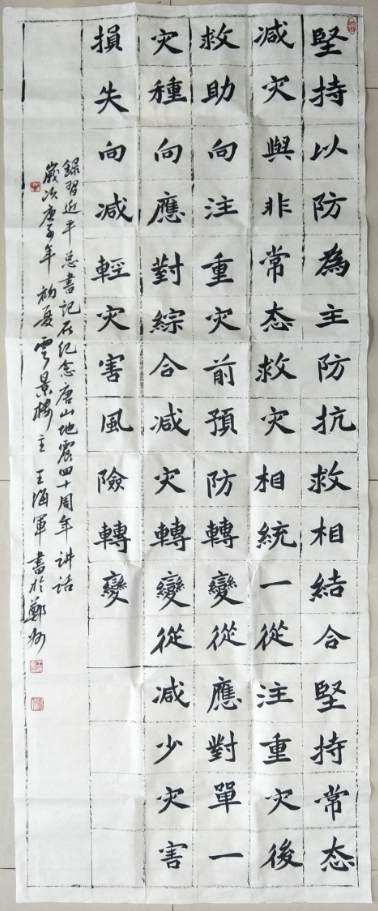 堅持以防為主防抗救相結合堅持常态
减灾與非常态救灾相統一從注重灾後
救助向注重灾前預防轉變從應對單一
灾種向應對綜合减灾轉變從减少灾害
損失向减輕灾害風險轉變
録習近平總書記在纪念唐山地震四十周年讲话
歲次庚子年初夏雲景樓主王海軍書於鄭州